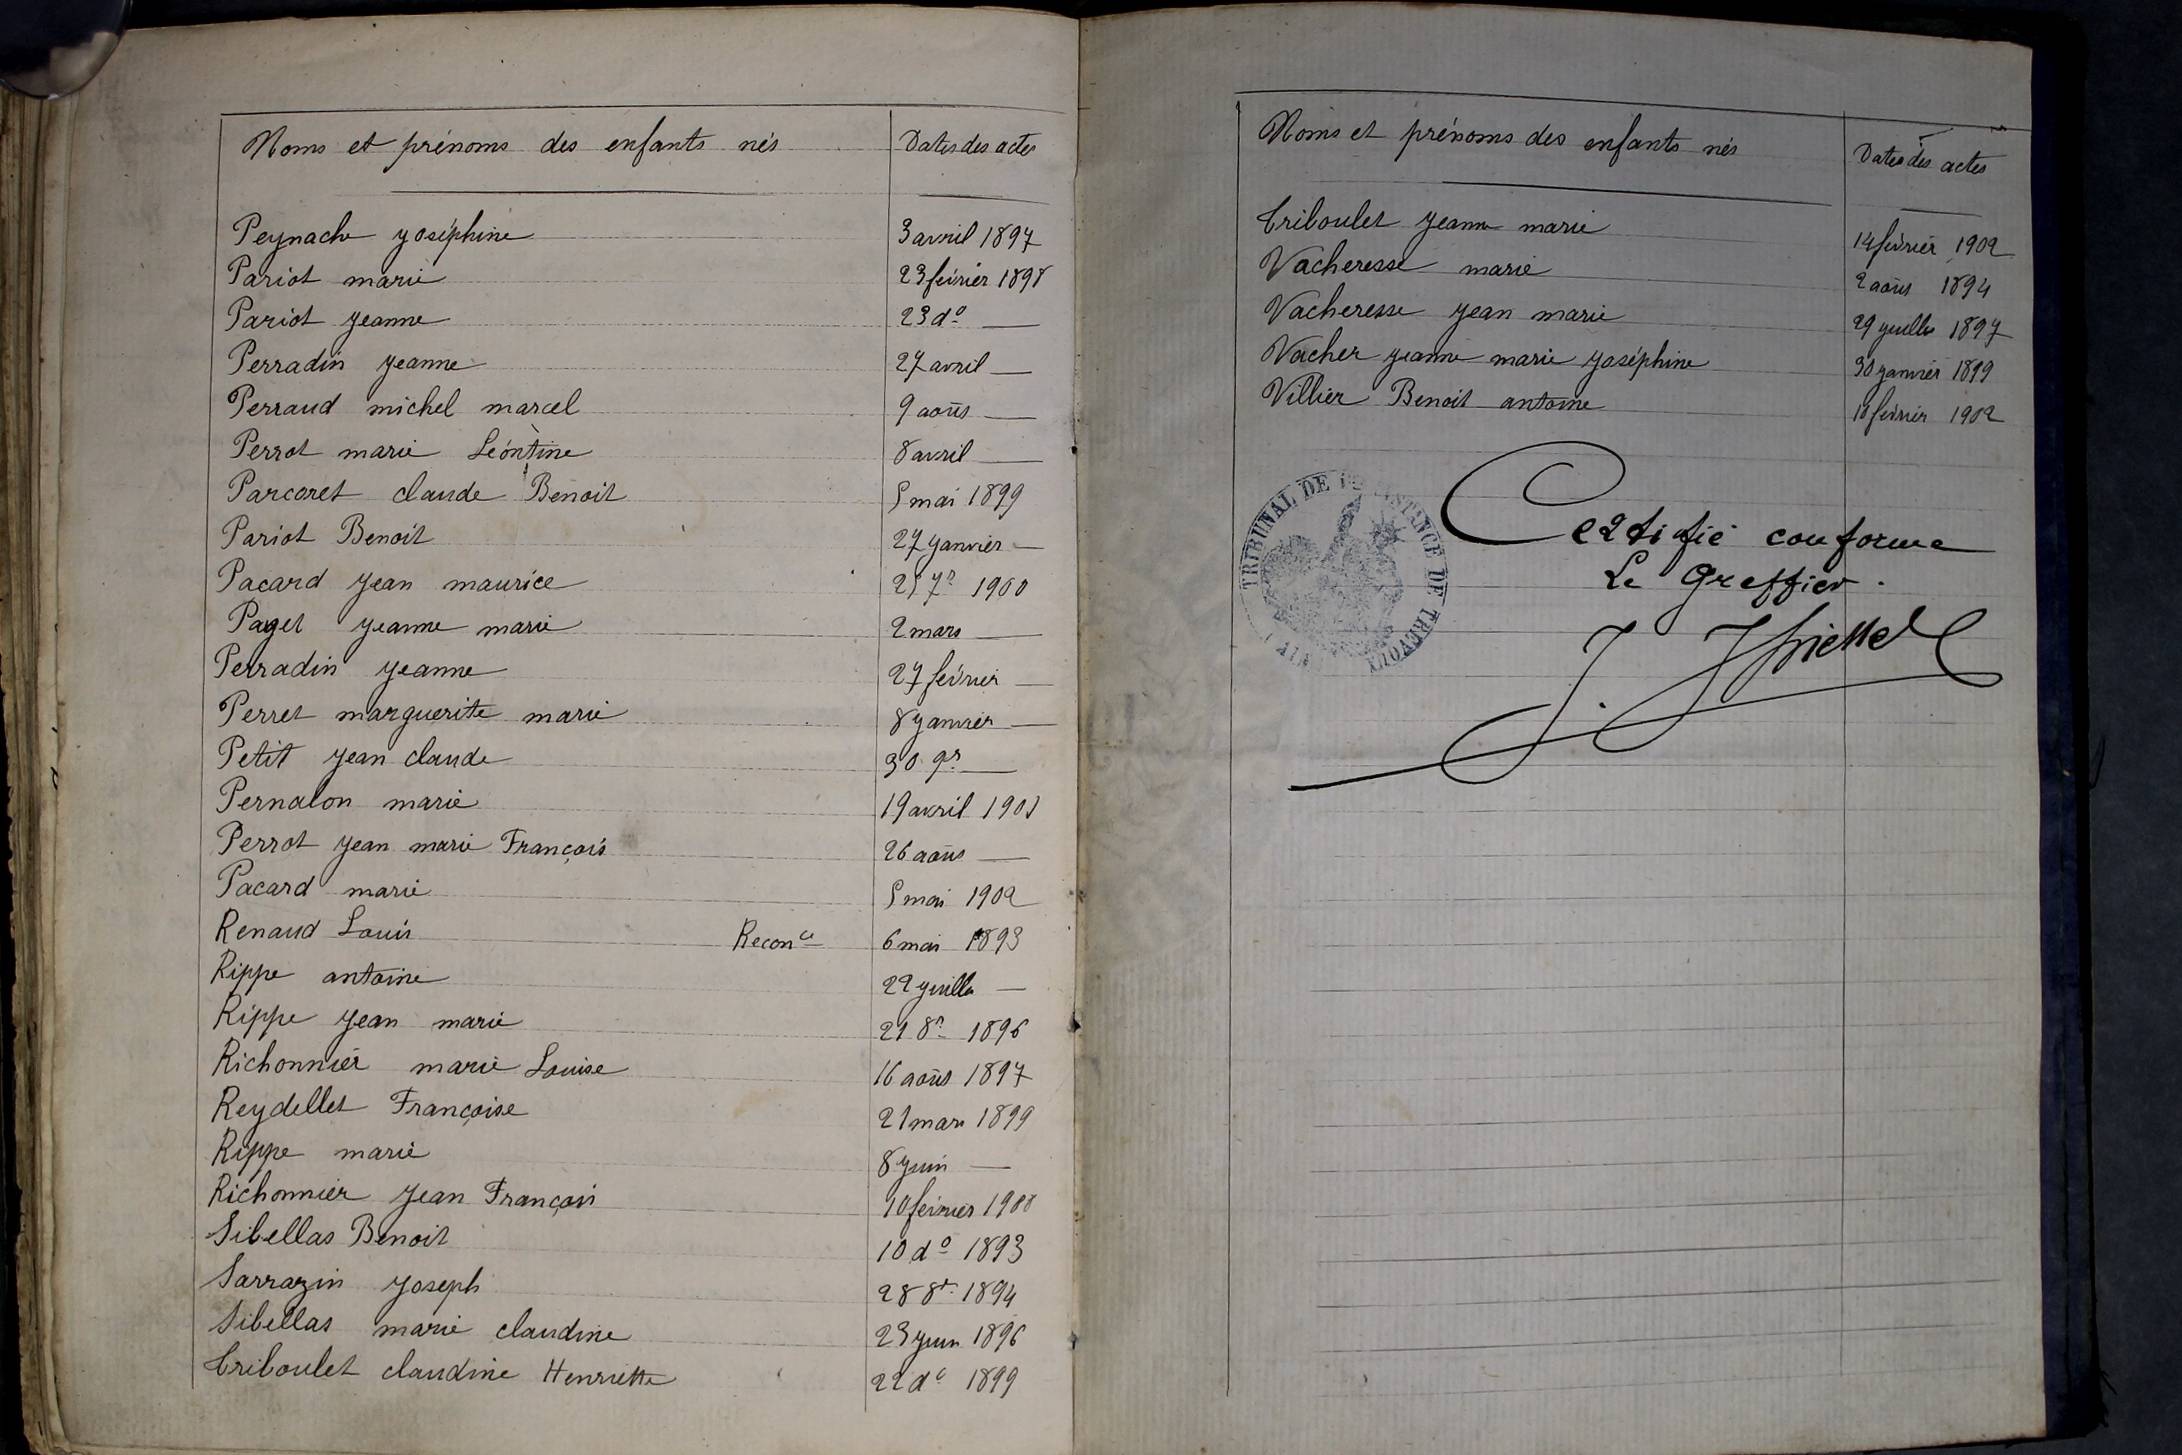 Noms et prénoms des enfants nés Dates des actes
Peynache Joséphine 3 avril 1897
Pariot marie 23 février 1898
Pariot Jeanne 23 do —
Perradin Jeanne 27 avril —
Perraud michel marcel 9 août —
Perrot marie Léontine 8 avril —
Parcoret claude Benoit 5 mai 1899
Pariot Benoit 27 Janvier —
Pacard Jean maurice 25 7re 1900
Paget Jeanne marie 2 mars —
Perradin Jeanne 27 février —
Perret marguerite marie 8 Janvier —
Petit Jean claude 30 9re —
Pernalon marie 19 avril 1901
Perrot Jean marie François 26 août —
Pacard marie 5 mai 1902
Renaud Louis Reconce 6 mai 1893
Rippe antoine 22 Juillet —
Rippe Jean marie 21 8re 1896
Richonnier marie Louise 16 août 1897
Reydellet Françoise 21 mars 1899
Rippe marie 8 Juin —
Richonnier Jean François 10 février 1900
Sibellas Benoit 10 do 1893
Sarrazin Joseph 28 8re 1894
Sibellas marie claudine 23 Juin 1896
Triboulet claudine Henriette 22 do 1899
Noms et prénoms des enfants nés Dates des actes
Triboulet Jeanne marie 14 février 1902
Vacheresse marie 2 août 1894
Vacheresse Jean marie 29 Juillet 1897
Vacher Jeanne marie Joséphine 30 Janvier 1899
Villier Benoit antoine 18 février 1902
TRIBUNAL DE 1re INSTANCE DE TREVOUX
AIN
Certifié conforme
Le Greffier.